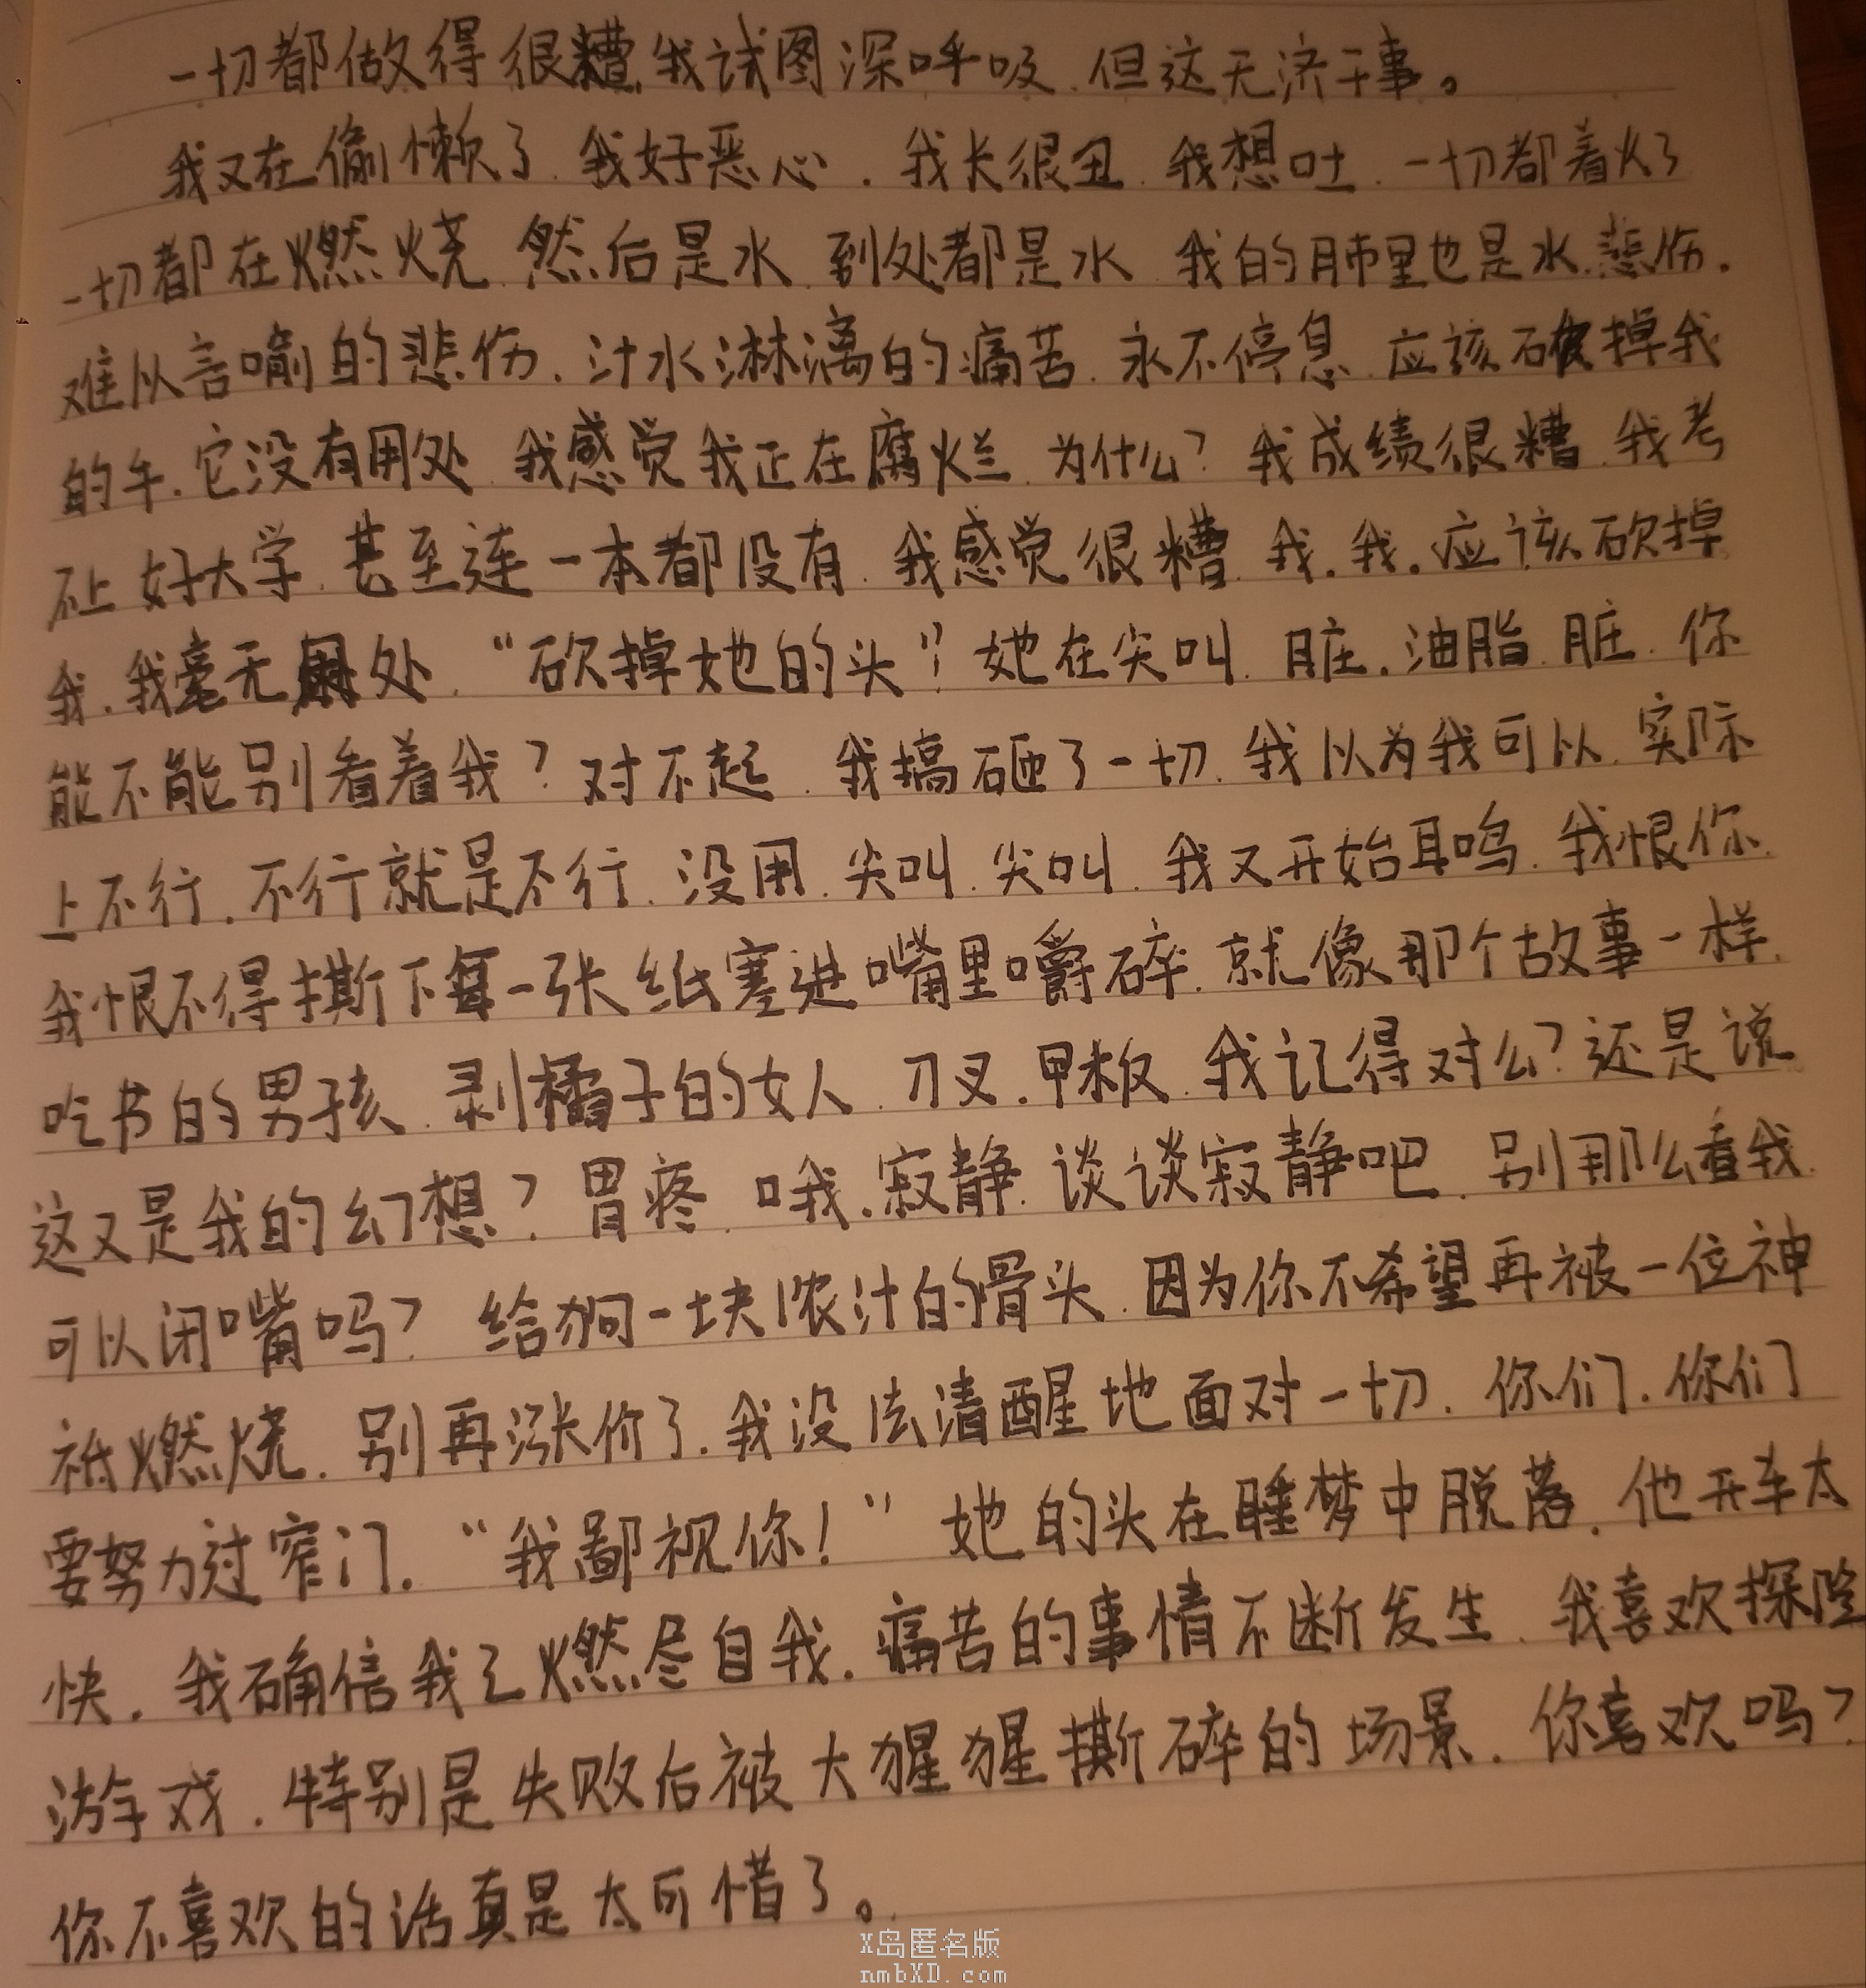 一切都做得很糟,我试图深呼吸.但这无济于事。
我又在偷懒了.我好恶心.我长很丑.我想吐.一切都着火了
一切都在燃烧.然后是水.到处都是水.我的肺里也是水.悲伤.
难以言喻的悲伤.汁水淋漓的痛苦.永不停息.应该砍掉我
的手.它没有用处.我感觉我正在腐烂.为什么?我成绩很糟.我考
不上好大学.甚至连一本都没有.我感觉很糟.我.我.应该砍掉
我.我毫无用处.“砍掉她的头”!她在尖叫.脏.油脂.脏.你
能不能别看着我?对不起.我搞砸了一切.我以为我可以.实际
上不行.不行就是不行.没用.尖叫.尖叫.我又开始耳鸣.我恨你.
我恨不得撕下每一张纸塞进嘴里嚼碎.就像那个故事一样.
吃书的男孩.剥橘子的女人.刀叉.甲板.我记得对么?还是说
这又是我的幻想?胃疼.哦.寂静.谈谈寂静吧.别那么看我.
可以闭嘴吗?给狗一块浓汁的骨头.因为你不希望再被一位神
祇燃烧.别再涨价了.我没法清醒地面对一切.你们.你们
要努力过窄门.“我鄙视你!”她的头在睡梦中脱落.他开车太
快.我确信我已燃尽自我.痛苦的事情不断发生.我喜欢探险
游戏.特别是失败后被大猩猩撕碎的场景.你喜欢吗?
你不喜欢的话真是太可惜了。
X岛匿名版
nmbXD.com